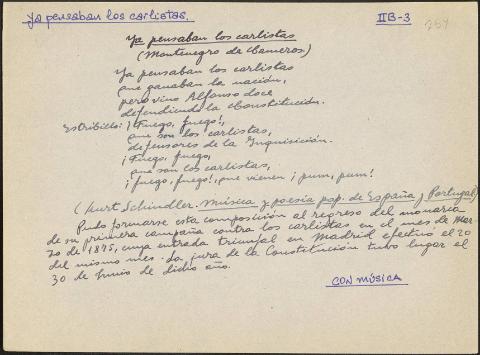 Ya pensaban los carlistas. IIB-3 254
Ya pensaban los carlistas
(Montenegro de Cameros)
Ya pensaban los carlistas
que ganaban la nación,
pero vino Alfonso doce
defendiendo la Constitución.
Estribillo: ¡Fuego, fuego!,
que son los carlistas,
defensores de la Inquisición.
¡Fuego, fuego,
que son los carlistas,
¡fuego, fuego!, que vienen ¡pum, pum!
(Kurt Schindler. Música y poesía pop. de España y Portugal)
Pudo formarse esta composición al regreso del monarca
de su primera campaña contra los carlistas en el mes de Mar
zo de 1875, cuya entrada triunfal en Madrid efectuó el 20
del mismo mes. La jura de la Constitución tubo lugar el
30 de Junio de dicho año.
CON MÚSICA